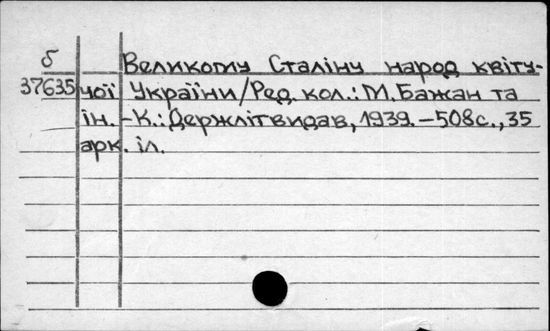 б
37635
Великому Сталіну народ квіту-
чої України/Ред. кол.: М. Бажан та
ін. -К.: Держлітвидав, 1939. -508с., 35
арк. іл.